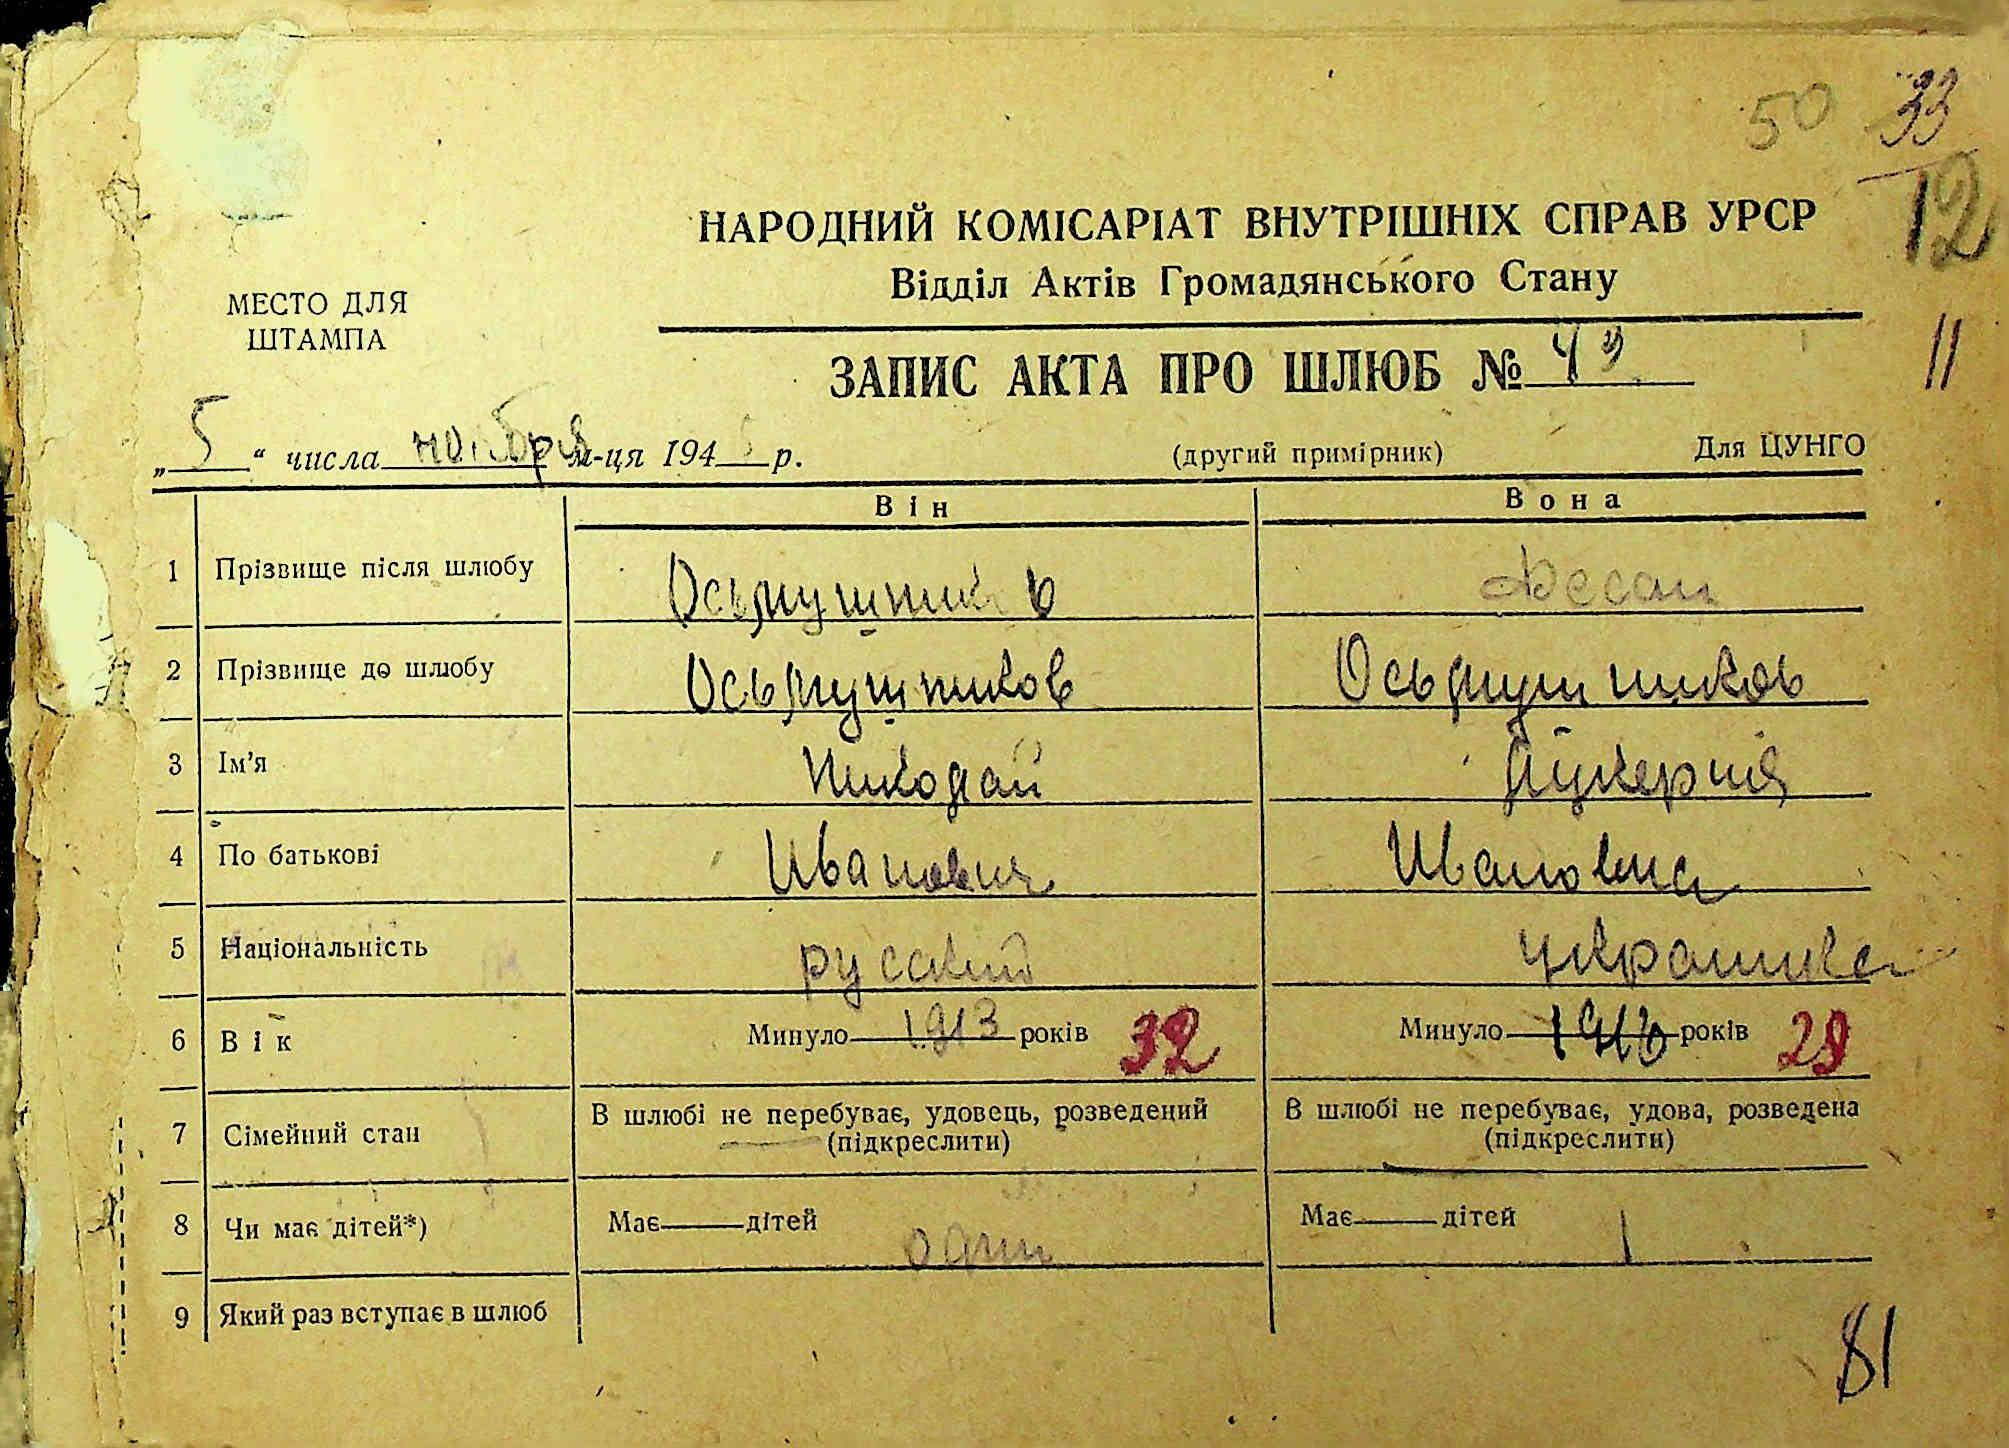 50 33
12
НАРОДНИЙ КОМІСАРІАТ ВНУТРІШНІХ СПРАВ УРСР
Відділ Актів Громадянського Стану
МЕСТО ДЛЯ
ШТАМПА
11
ЗАПИС АКТА ПРО ШЛЮБ № 49
„ 5 “ числа ноября м-ця 194 5 р. (другий примірник) Для ЦУНГО
Він Вона
1 Прізвище після шлюбу Осьмушников
2 Прізвище до шлюбу Осьмушников Осьмушников
3 Ім'я Николай Лукерия
4 По батькові Иванович Ивановна
5 Національність русский украинка
6 Вік Минуло 1913 років 32 Минуло 1916 років 29
7 Сімейний стан В шлюбі не перебуває, удовець, розведений (підкреслити) В шлюбі не перебуває, удова, розведена (підкреслити)
8 Чи має дітей*) Має дітей один Має дітей 1
9 Який раз вступає в шлюб
81